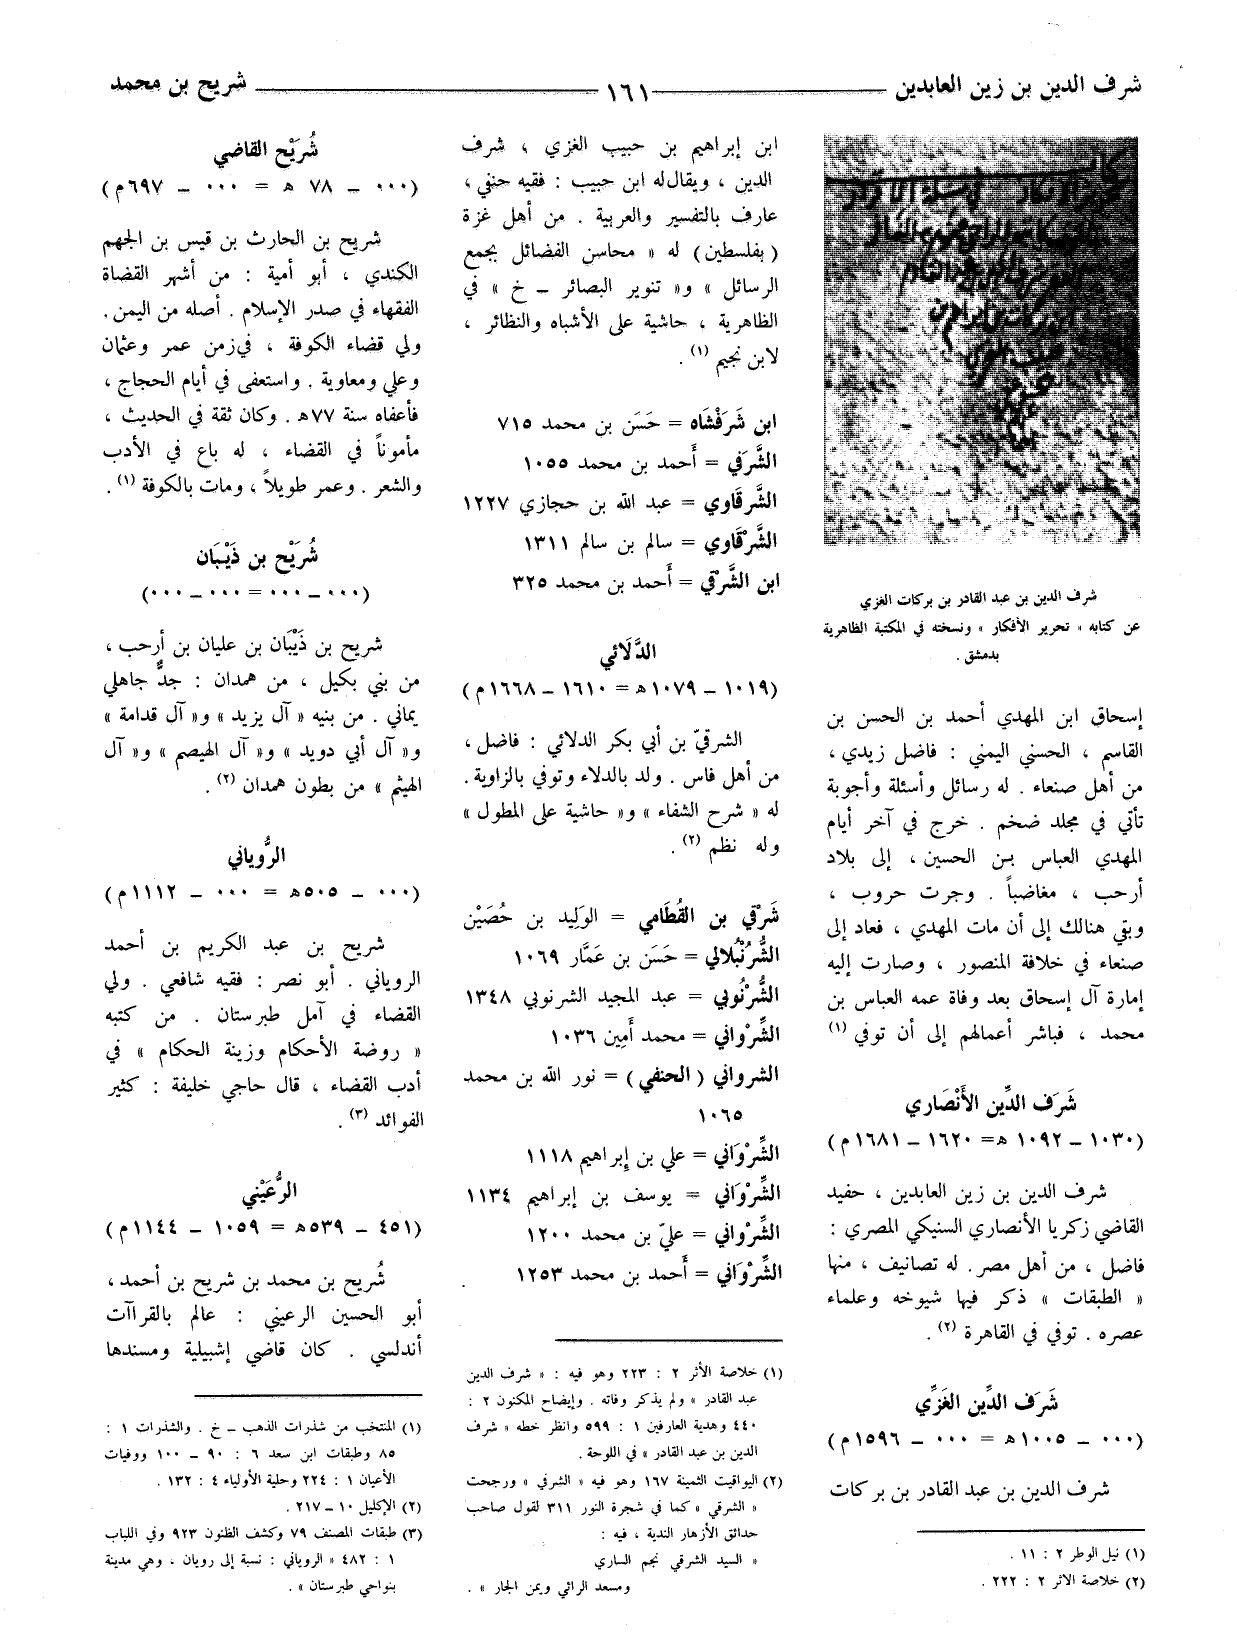 شرف الدين بن زين العابدين ١٦١ شريح بن محمد
شرف الدين بن عبد القادر بن بركات الغزي
عن كتابه « تحرير الأفكار » ونسخته في المكتبة الظاهرية
بدمشق .
إسحاق ابن المهدي أحمد بن الحسن بن
القاسم ، الحسني اليمني : فاضل زيدي ،
من أهل صنعاء . له رسائل وأسئلة وأجوبة
تأتي في مجلد ضخم . خرج في آخر أيام
المهدي العباس بن الحسين ، إلى بلاد
أرحب ، مغاضباً . وجرت حروب ،
وبقي هنالك إلى أن مات المهدي ، فعاد إلى
صنعاء في خلافة المنصور ، وصارت إليه
إمارة آل إسحاق بعد وفاة عمه العباس بن
محمد ، فباشر أعمالهم إلى أن توفي (١)
شَرَف الدِّين الأَنْصَاري
(١٠٣٠ – ١٠٩٢ ه‍ = ١٦٢٠ – ١٦٨١ م)
شرف الدين بن زين العابدين ، حفيد
القاضي زكريا الأنصاري السنيكي المصري :
فاضل ، من أهل مصر . له تصانيف ، منها
« الطبقات » ذكر فيها شيوخه وعلماء
عصره . توفي في القاهرة (٢) .
شَرَف الدِّين الغَزِّي
(٠٠٠ – ١٠٠٥ ه‍ = ٠٠٠ – ١٥٩٦ م)
شرف الدين بن عبد القادر بن بركات
(١) نيل الوطر ٢ : ١١ .
(٢) خلاصة الاثر ٢ : ٢٢٢ .
ابن إبراهيم بن حبيب الغزي ، شرف
الدين ، ويقال له ابن حبيب : فقيه حنفي ،
عارف بالتفسير والعربية . من أهل غزة
(بفلسطين) له « محاسن الفضائل بجمع
الرسائل » و« تنوير البصائر – خ » في
الظاهرية ، حاشية على الأشباه والنظائر ،
لابن نجيم (١) .
ابن شَرَفْشَاه = حَسَن بن محمد ٧١٥
الشَّرَفي = أَحمد بن محمد ١٠٥٥
الشَّرقاوي = عبد الله بن حجازي ١٢٢٧
الشَّرْقَاوي = سالم بن سالم ١٣١١
ابن الشَّرْقي = أَحمد بن محمد ٣٢٥
الدَّلَائي
(١٠١٩ – ١٠٧٩ ه‍ = ١٦١٠ – ١٦٦٨ م)
الشرقيّ بن أبي بكر الدلائي : فاضل ،
من أهل فاس . ولد بالدلاء وتوفي بالزاوية .
له « شرح الشفاء » و« حاشية على المطول »
وله نظم (٢) .
شَرْقي بن القُطَامي = الوَليد بن حُصَيْن
الشُّرُنْبُلالي = حَسَن بن عَمَّار ١٠٦٩
الشُّرْنُوبي = عبد المجيد الشرنوبي ١٣٤٨
الشِّرْواني = محمد أَمِين ١٠٣٦
الشرواني ( الحنفي ) = نور الله بن محمد
١٠٦٥
الشِّرْوَاني = علي بن إبراهيم ١١١٨
الشِّرْوَاني = يوسف بن إبراهيم ١١٣٤
الشِّرْواني = عليّ بن محمد ١٢٠٠
الشِّرْوَاني = أَحمد بن محمد ١٢٥٣
(١) خلاصة الأثر ٢ : ٢٢٣ وهو فيه : « شرف الدين
عبد القادر » ولم يذكر وفاته . وإيضاح المكنون ٢ :
٤٤٠ وهدية العارفين ١ : ٥٩٩ وانظر خطه « شرف
الدين بن عبد القادر » في اللوحة .
(٢) اليواقيت الثمينة ١٦٧ وهو فيه « الشرفي » ورجحت
« الشرقي » كما في شجرة النور ٣١١ لقول صاحب
حدائق الأزهار الندية ، فيه :
« السيد الشرقي نجم الساري
ومسعد الرائي ويمن الجار » .
شُرَيْح القاضي
(٠٠٠ – ٧٨ ه‍ = ٠٠٠ – ٦٩٧ م)
شريح بن الحارث بن قيس بن الجهم
الكندي ، أبو أمية : من أشهر القضاة
الفقهاء في صدر الإسلام . أصله من اليمن .
ولي قضاء الكوفة ، في زمن عمر وعثمان
وعلي ومعاوية . واستعفى في أيام الحجاج ،
فأعفاه سنة ٧٧ ه‍ . وكان ثقة في الحديث ،
مأموناً في القضاء ، له باع في الأدب
والشعر . وعمر طويلاً ، ومات بالكوفة (١) .
شُرَيْح بن ذَيْبَان
(٠٠٠ – ٠٠٠ = ٠٠٠ – ٠٠٠)
شريح بن ذَيْبَان بن عليان بن أرحب ،
من بني بكيل ، من همدان : جدٌّ جاهلي
يماني . من بنيه « آل يزيد » و« آل قدامة »
و« آل أبي دويد » و« آل الهيصم » و« آل
الهيثم » من بطون همدان (٢) .
الرُّوياني
(٠٠٠ – ٥٠٥ ه‍ = ٠٠٠ – ١١١٢ م)
شريح بن عبد الكريم بن أحمد
الروياني . أبو نصر : فقيه شافعي . ولي
القضاء في آمل طبرستان . من كتبه
« روضة الأحكام وزينة الحكام » في
أدب القضاء ، قال حاجي خليفة : كثير
الفوائد (٣) .
الرُّعَيْني
(٤٥١ – ٥٣٩ ه‍ = ١٠٥٩ – ١١٤٤ م)
شُريح بن محمد بن شريح بن أحمد ،
أبو الحسين الرعيني : عالم بالقراآت
أندلسي . كان قاضي إشبيلية ومسندها
(١) المنتخب من شذرات الذهب – خ . والشذرات ١ :
٨٥ وطبقات ابن سعد ٦ : ٩٠ – ١٠٠ ووفيات
الأعيان ١ : ٢٢٤ وحلية الأولياء ٤ : ١٣٢ .
(٢) الإكليل ١٠ – ٢١٧ .
(٣) طبقات المصنف ٧٩ وكشف الظنون ٩٢٣ وفي اللباب
١ : ٤٨٢ « الروياني : نسبة إلى رويان ، وهي مدينة
بنواحي طبرستان » .